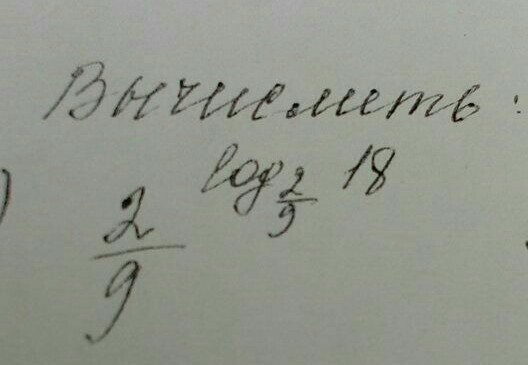 Вычислить:
) 2/9 log 2/9 18